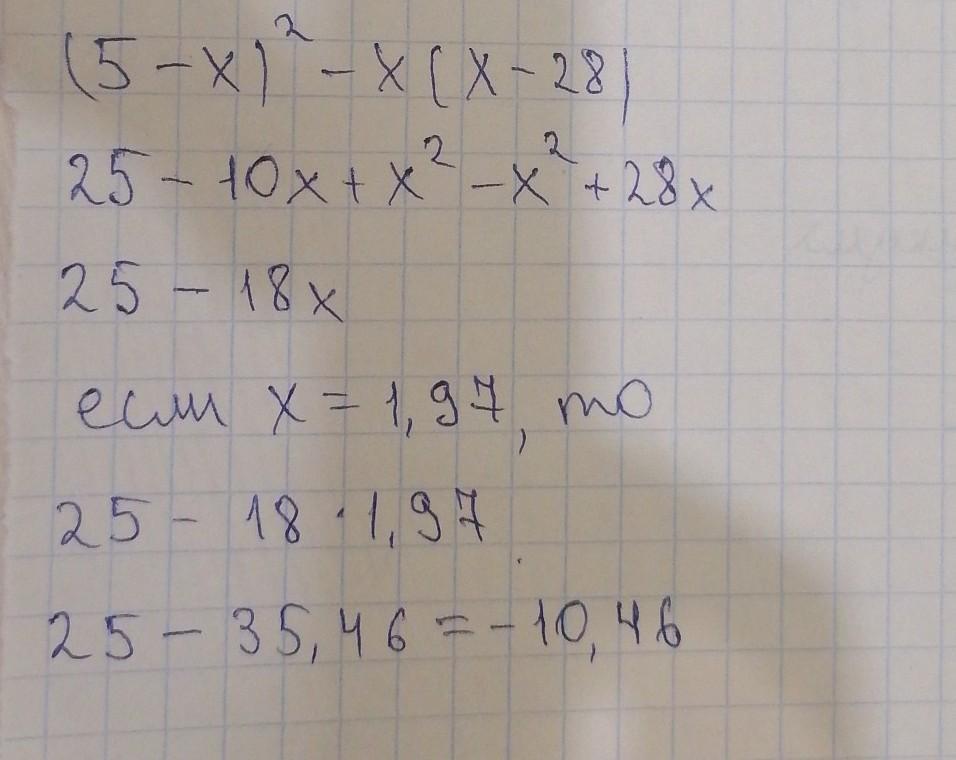 (5 - x)² - x(x - 28)
25 - 10x + x² - x² + 28x
25 - 18x
если x = 1,97, то
25 - 18 · 1,97
25 - 35,46 = -10,46